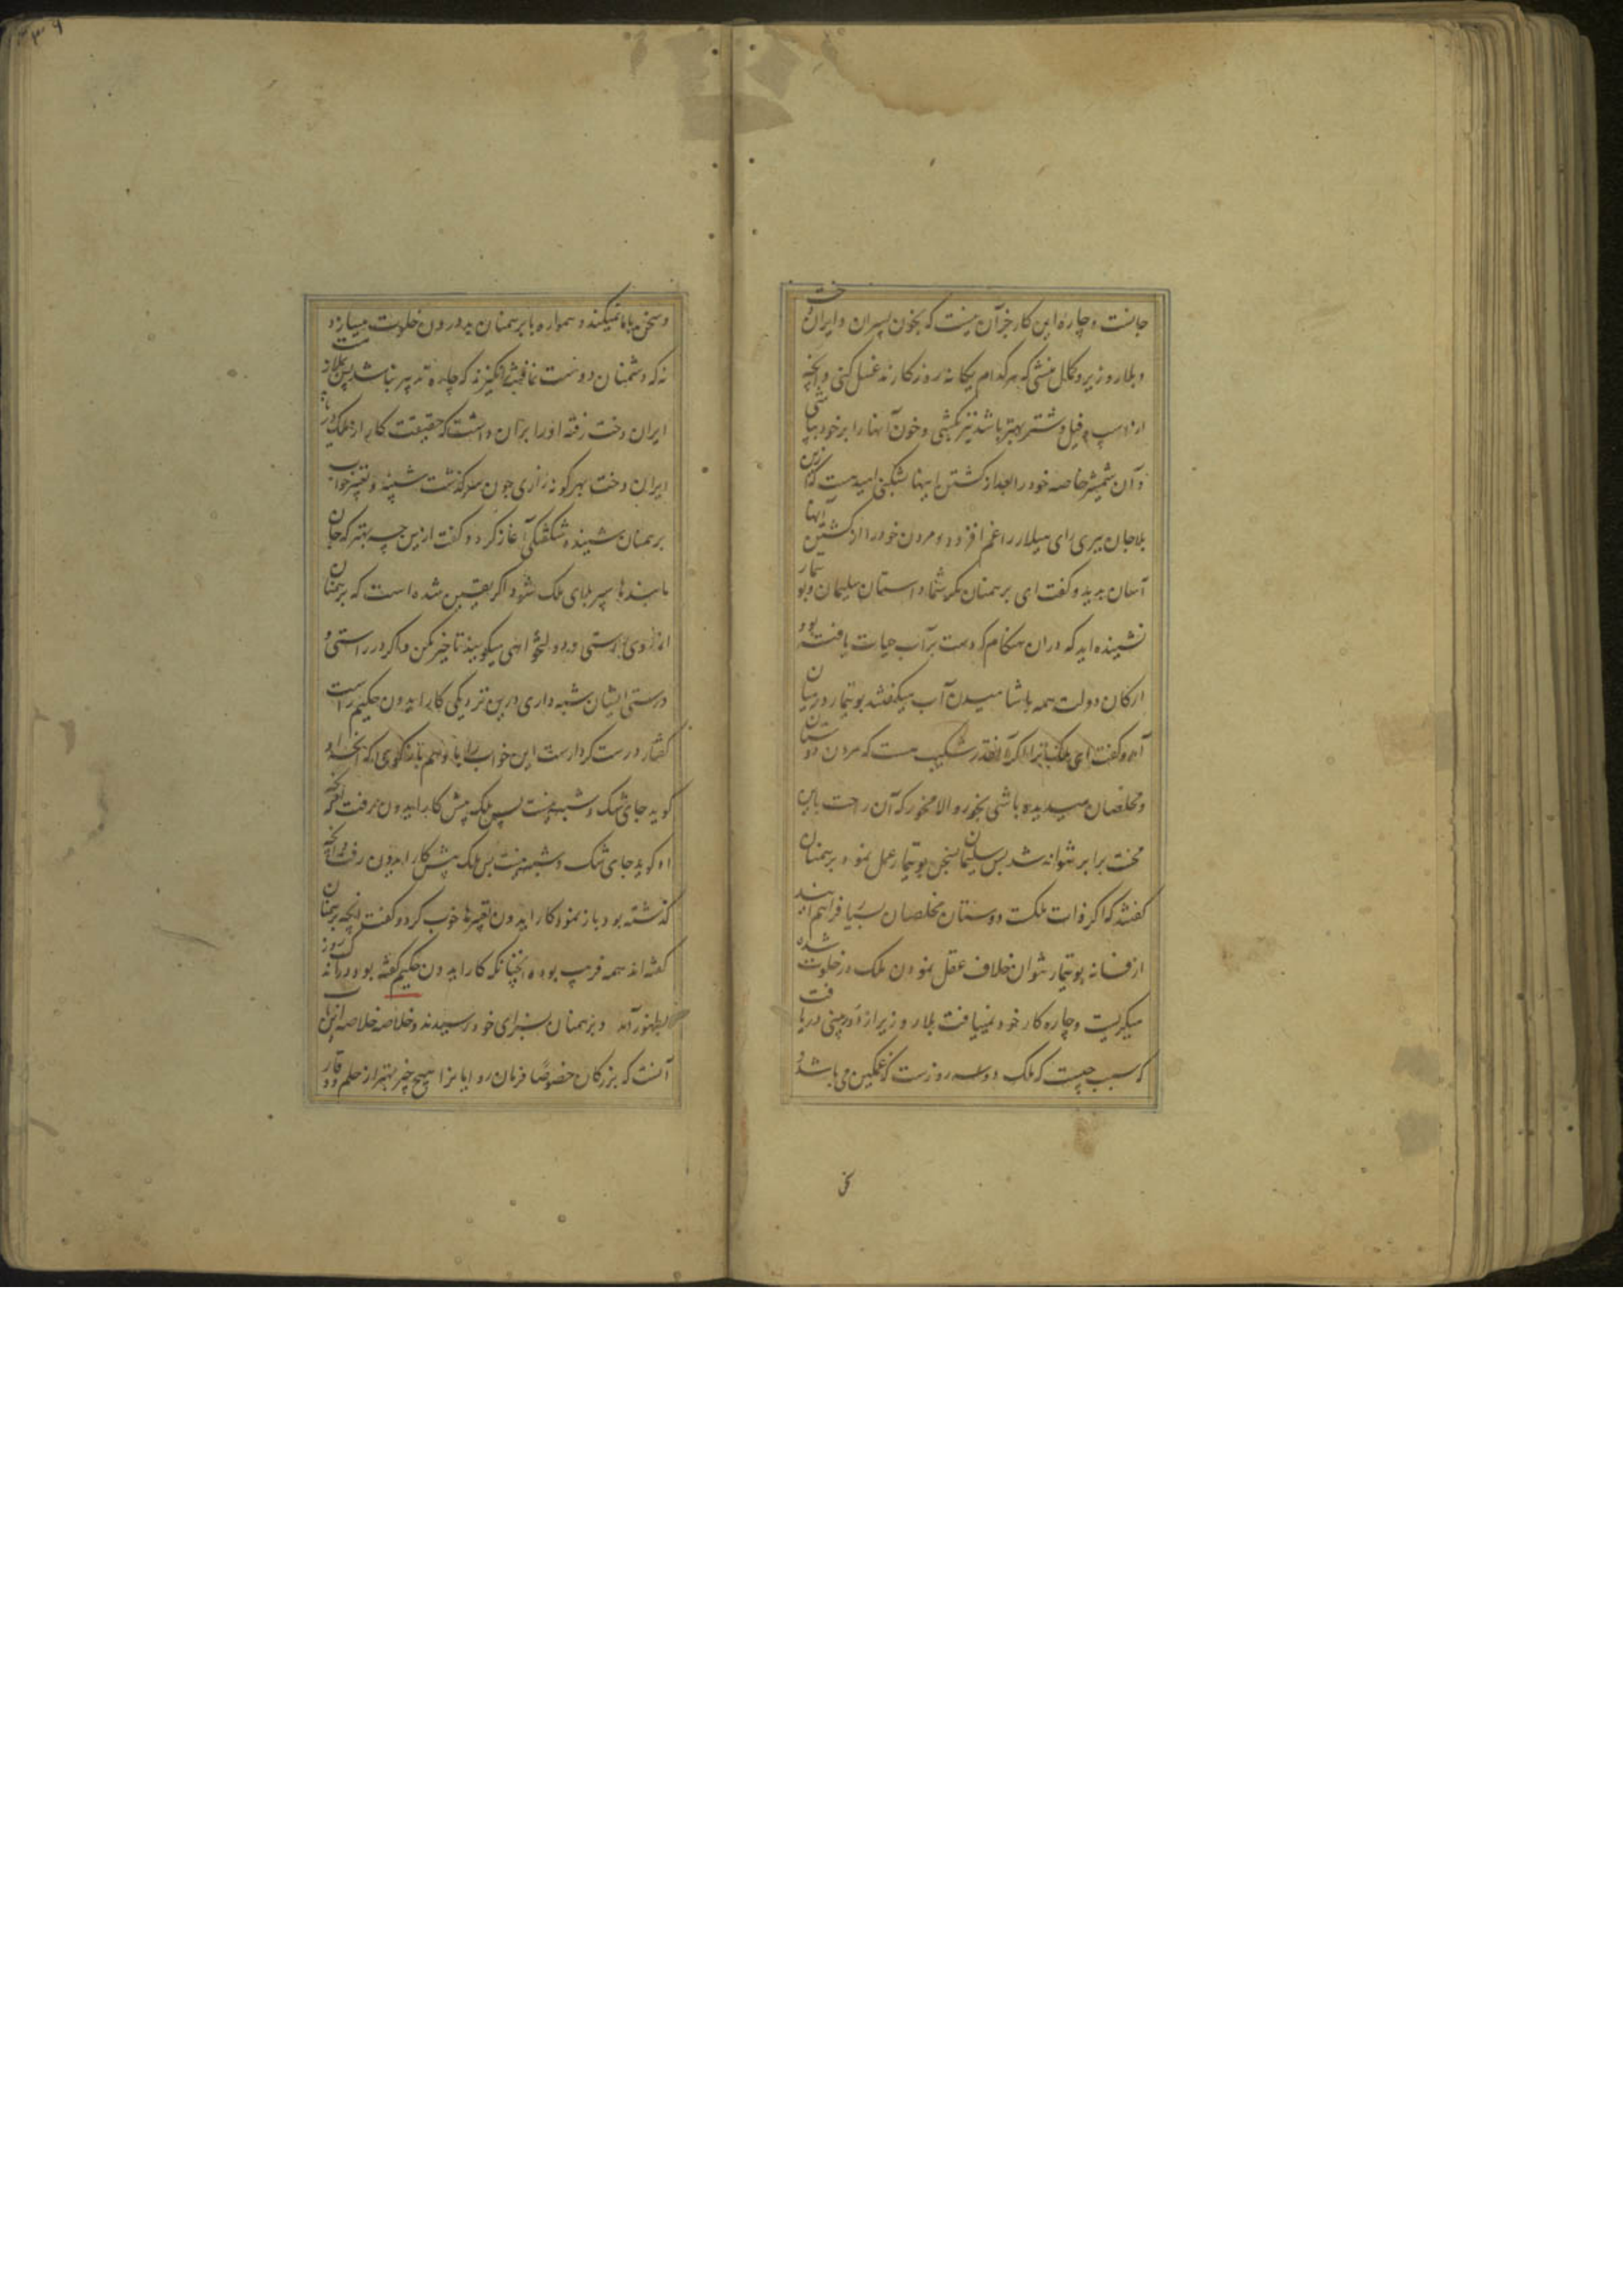 جانست و چارهٔ این کار جز آن نیست که بخون پسران و ایران دخت
و بلار وزیر و کمال منشی که هر کدام یگانه روزگارند غسل کنی و آنچه
از اسپ و فیل و شتر بهتر باشد نیز بکشی و خون آنها را بر خود بپاشی
و آن شمشیر خاصه خود را بعد از کشتن اینها بشکنی امید هست که ازین
بلا جان ببری رای هیلار را غم افزود و مردن خود را از کشتن آنها
آسان دید و گفت ای برهمنان مگر شما داستان سلیمان و بوتیمار
نشنیده اید که دران هنگام که دست بر آب حیات یافته بود
ارکان دولت همه باشامیدن آب میگفتند بوتیمار در میان
آمد و گفت ای ملک ترا اگر آنقدر شکیب هست که مردن دوستان
و مخلصان میدیده باشی بخور والا مخور که آن راحت باین
محنت برابر نتواند شد پس سلیمان بسخن بوتیمار عمل نمود برهمنان
گفتند که اگر ذات ملکست دوستان و مخلصان بسیار فراهم آیند
از فسانه بوتیمار نتوان خلاف عقل نمودن ملک در خلوت شده
میگریست و چاره کار خود نمییافت بلار وزیر از دوربینی دریافت
که سبب چیست که ملک دو سه روزست که غمگین می باشد و
سخن
و سخن با ما نمیکند و همواره با برهمنان بد درون خلوت میسازد و
نه که دشمنان دوست نما فتنه انگیزند که چاره تدبیر نباشد پس بلار
ایران دخت رفته او را بر آن داشت که حقیقت کار از ملک دریابد
ایران دخت بهر گونه زاری چون سرگذشت شنید و تعبیر خواب
برهمنان شنیده شگفتگی آغاز کرد و گفت ازین چه بهتر که جان
ما بندها سپر بلای ملک شود اگر یقین شده است که برهمنان
از روی راستی و دولتخواهی میگویند تاخیر مکن و اگر در راستی و
درستی ایشان شبه داری درین نزدیکی کار ایدون حکیم راست
گفتار درست کردارست این خواب را باو هم باز گوی که آنچه او
گوید جای شک و شبه نیست پس ملک پیش کار ایدون رفت و آنچه
او گوید جای شک و شبه نیست پس ملک پیش کار ایدون رفت و آنچه
گذشته بود باز نمود کار ایدون تعبیرها خوب کرد و گفت آنچه برهمنان
گفته اند همه فریب بوده چنانکه کار ایدون حکیم گفته بود در اندک روز
بظهور آمد و برهمنان بسزای خود رسیدند و خلاصه خلاصه این باب
آنست که بزرگان خصوصًا فرمان روایانرا هیچ چیز بهتر از حلم و وقار